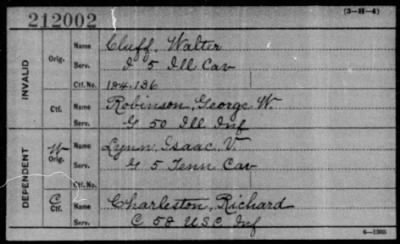 212002
(3-H-4)
INVALID
Orig.
Name Cluff, Walter
Serv. I 5 Ill Cav
Ctf. No. 124.136
Ctf.
Name Robinson, George W.
Serv. G 50 Ill Inf
DEPENDENT
W Orig.
Name Lynn, Isaac, V.
Serv. G 5 Tenn Cav
Ctf. No.
C Ctf.
Name Charleston, Richard
Serv. C 58 U.S.C. Inf